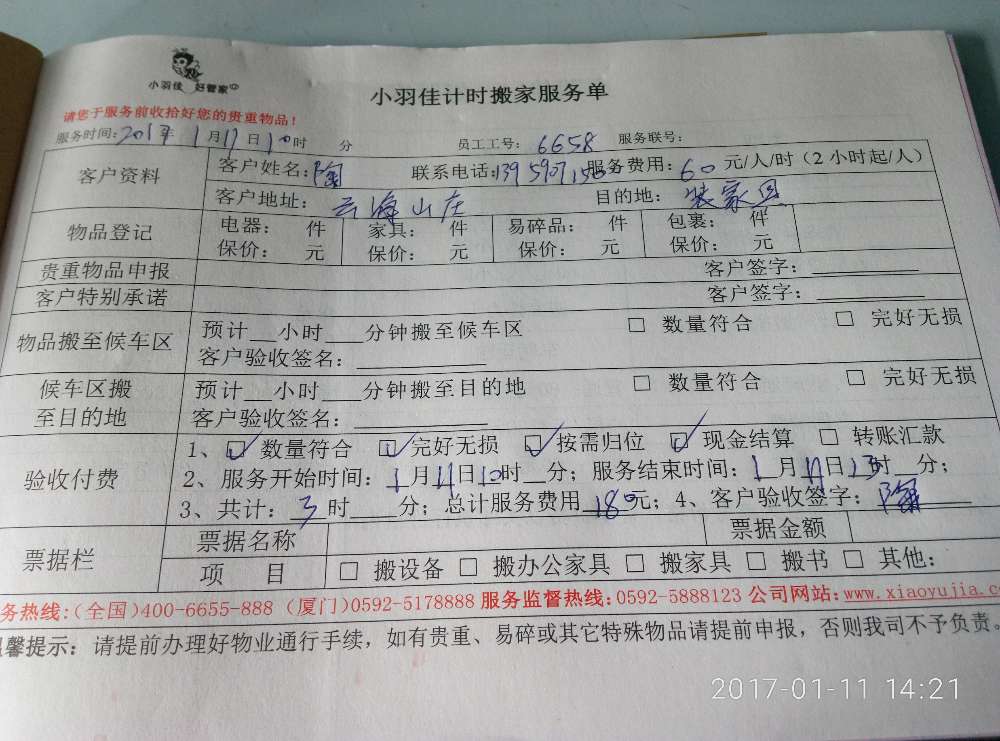 小羽佳 好管家
小羽佳计时搬家服务单
请您于服务前收拾好您的贵重物品！
服务时间: 年 1月11日10时 分 员工工号: 6658 服务联号:
客户资料 客户姓名: 陶 联系电话: 服务费用: 60 元/人/时(2小时起/人)
客户地址: 云海山庄 目的地: 装家具
物品登记 电器: 件 家具: 件 易碎品: 件 包裹: 件
保价: 元 保价: 元 保价: 元 保价: 元
贵重物品申报 客户签字:
客户特别承诺 客户签字:
物品搬至候车区 预计__小时___分钟搬至候车区 □ 数量符合 □ 完好无损
客户验收签名:
候车区搬 预计__小时___分钟搬至目的地 □ 数量符合 □ 完好无损
至目的地 客户验收签名:
验收付费 1、☑ 数量符合 ☑ 完好无损 ☑ 按需归位 ☑ 现金结算 □ 转账汇款
2、服务开始时间: 1月11日10时__分; 服务结束时间: 1月11日13时__分;
3、共计: 3时___分; 总计服务费用 180元; 4、客户验收签字: 陶
票据栏 票据名称 票据金额
项 目 □ 搬设备 □ 搬办公家具 □ 搬家具 □ 搬书 □ 其他:
务热线:(全国)400-6655-888 (厦门)0592-5178888 服务监督热线:0592-5888123 公司网站:www.xiaoyujia.c
馨提示: 请提前办理好物业通行手续，如有贵重、易碎或其它特殊物品请提前申报，否则我司不予负责。
2017-01-11 14:21